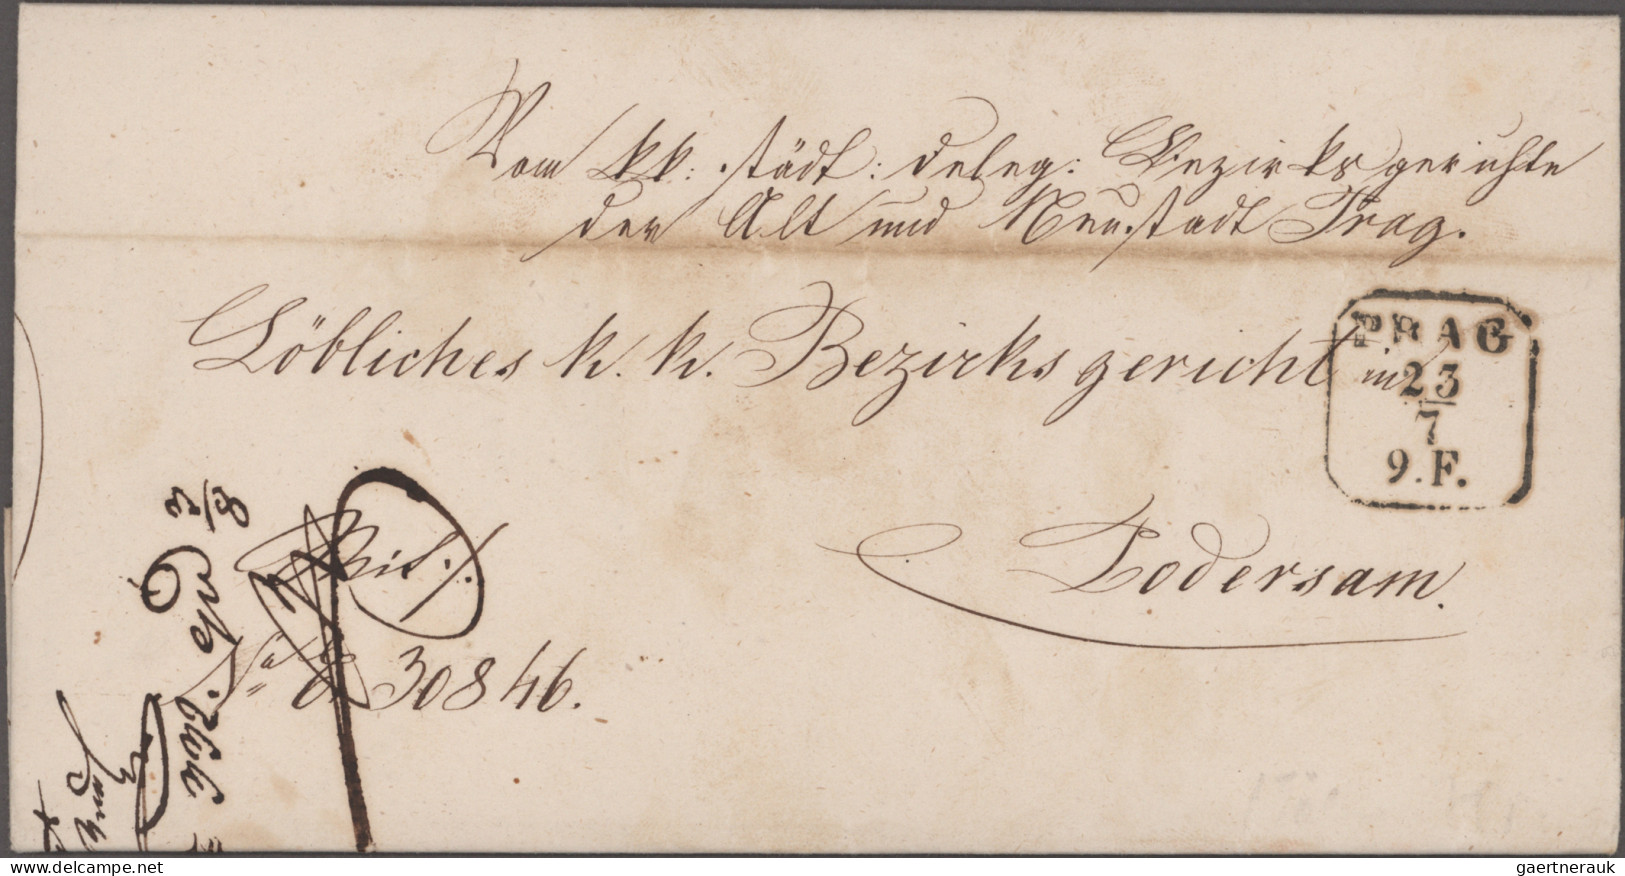 Vom kk: städt: deleg: Bezirksgerichte
der Alt und Neustadt Prag.
Löbliches k. k. Bezirksgericht in
PRAG
23
7
9. F.
Podersam.
No 30846.
delcampe.net
gaertnerauk